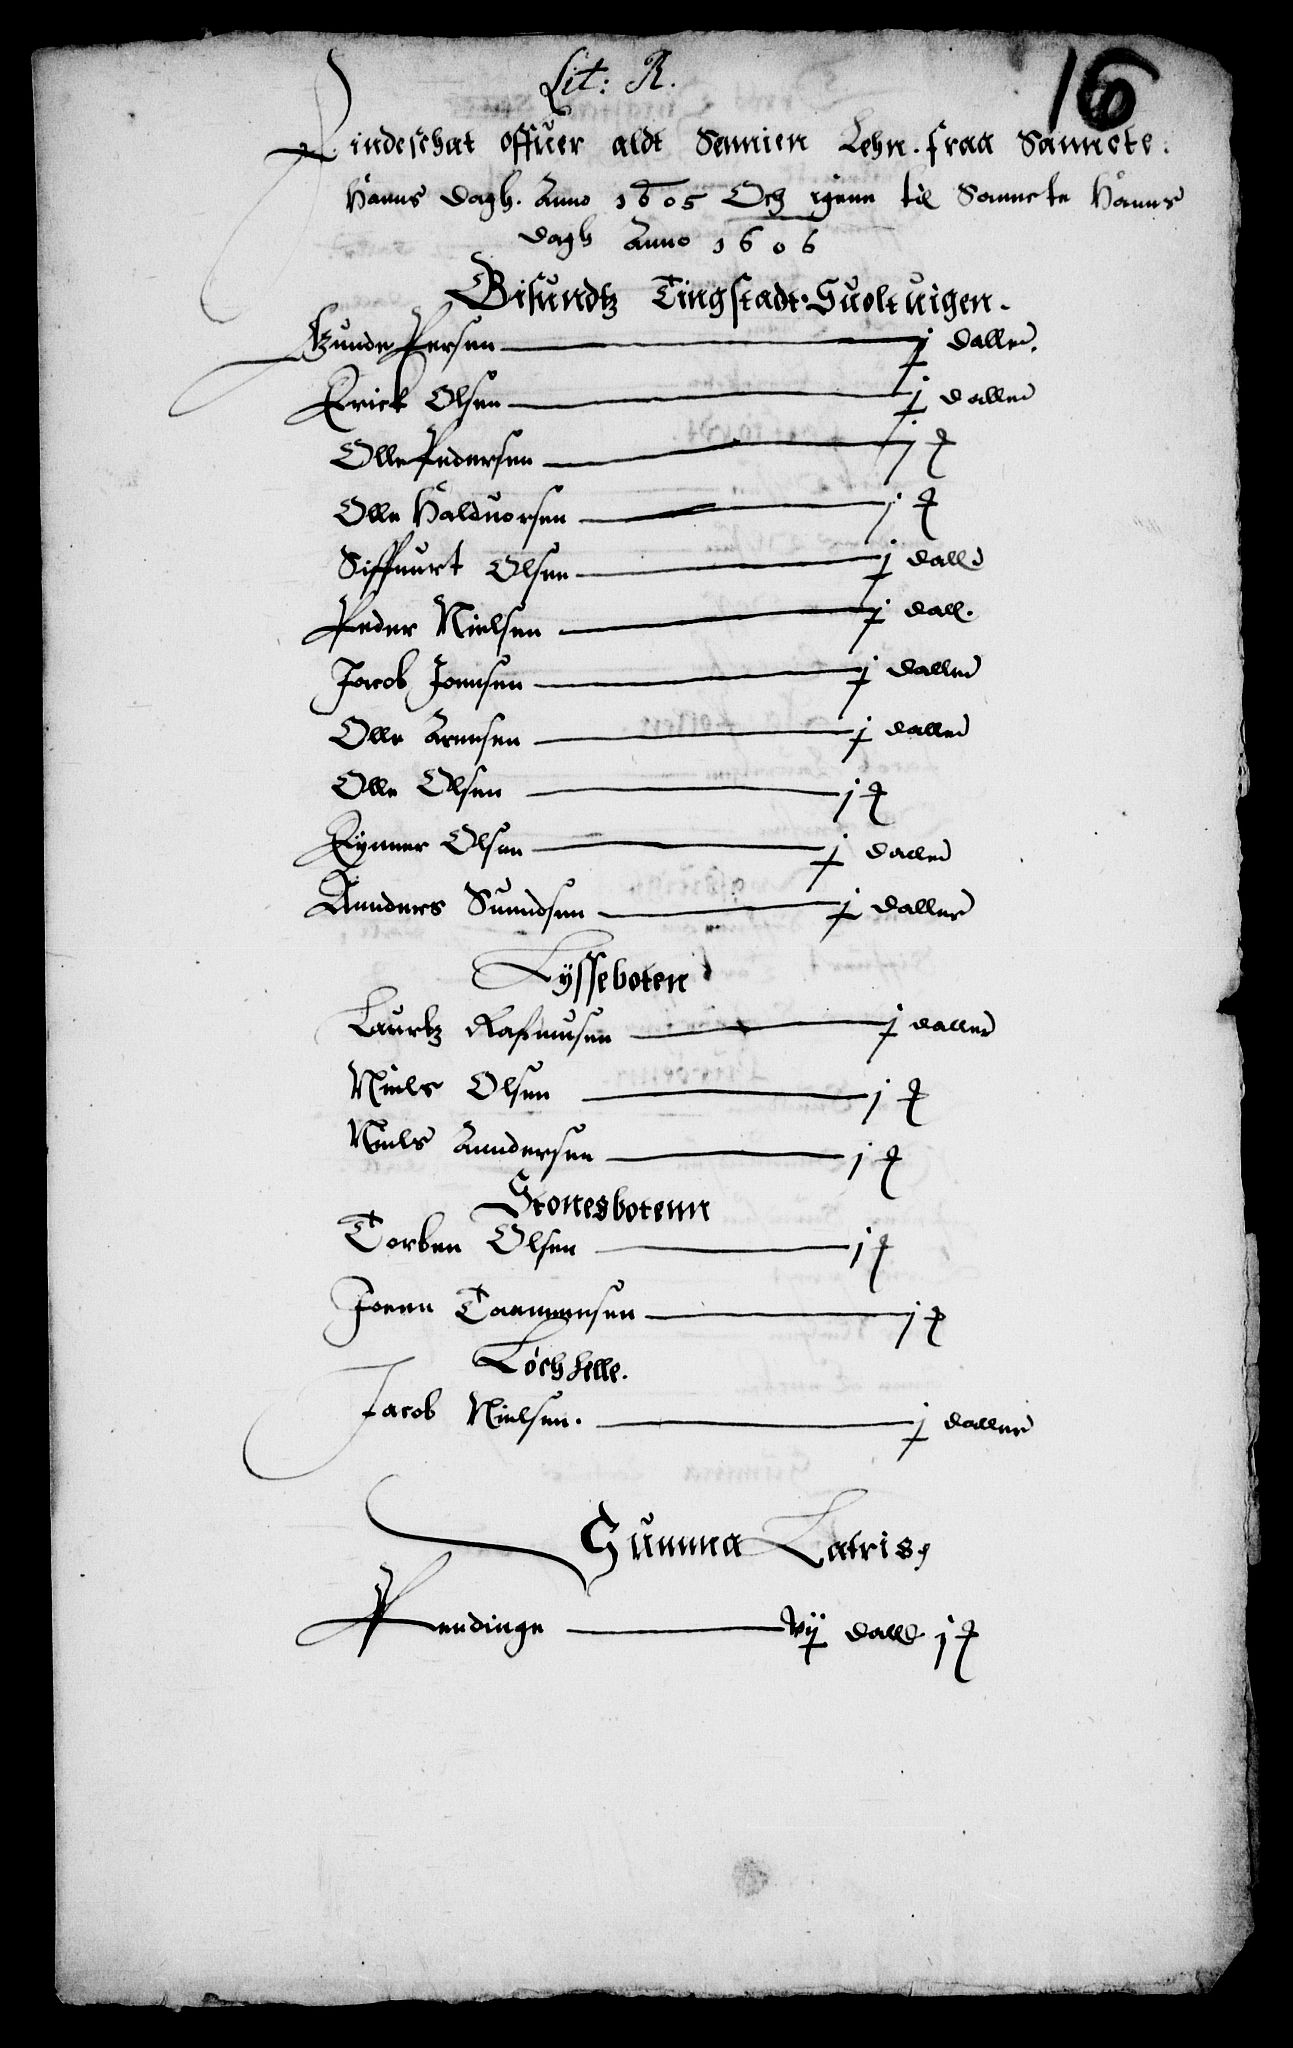 Lit: R.
16
Lindeschat offuer aldt Sennien Lehn. fraa Sanncte.
Hanns dagh. Anno 1605 Och igenn til Sanncte Hanns
dagh Anno 1606
Gisundtz Tingstadt. Suoltuigen.
Gunde Persen j daller.
Erick Olsen j daller
Olle Pedersen 1
Olle Halduorsen 1
Siffuurt Olsen j dall
Peder Nielsen j dall.
Jacob Jonnsen j daller
Olle Arensen j daller
Olle Olsen 1
Eynner Olsen j daller
Annders Suendsen j daller
Lysseboten
Laurtz Rasmusen j daller
Niels Olsen 1
Niels Anndersen 1
Stonesbotenn
Torben Olsen 1
Joenn Taamensen 1
Løchhelle.
Jacob Nielsen. j daller
Summa Latris,
Pendinge vij dall 1